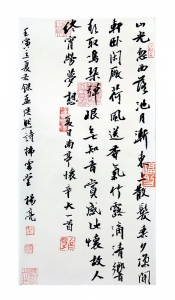 山光忽西落池月漸東上散髮乘夕涼開
軒卧閑敞荷風送香氣竹露滴清響
欲取鳴琴彈恨無知音賞感此懷故人
終宵勞夢想 夏日南亭懷辛大一首
壬寅立夏孟浩然詩 楊亮